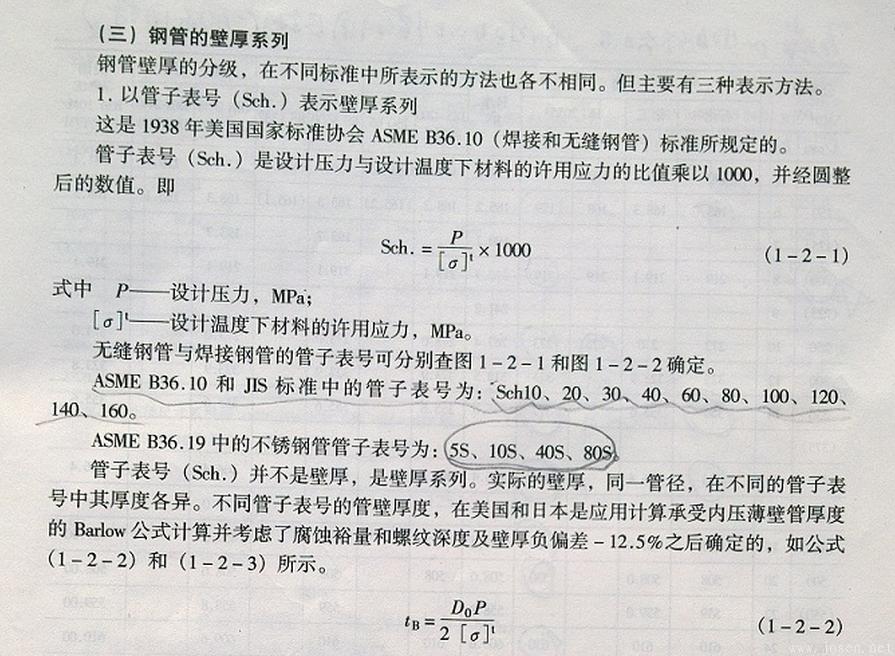 (三) 钢管的壁厚系列
钢管壁厚的分级，在不同标准中所表示的方法也各不相同。但主要有三种表示方法。
1. 以管子表号 (Sch.) 表示壁厚系列
这是 1938 年美国国家标准协会 ASME B36.10 (焊接和无缝钢管) 标准所规定的。
管子表号 (Sch.) 是设计压力与设计温度下材料的许用应力的比值乘以 1000，并经圆整
后的数值。即
Sch. = P/[σ]ᵗ × 1000 (1-2-1)
式中 P——设计压力，MPa；
[σ]ᵗ——设计温度下材料的许用应力，MPa。
无缝钢管与焊接钢管的管子表号可分别查图 1-2-1 和图 1-2-2 确定。
ASME B36.10 和 JIS 标准中的管子表号为：Sch10、20、30、40、60、80、100、120、
140、160。
ASME B36.19 中的不锈钢管管子表号为：5S、10S、40S、80S。
管子表号 (Sch.) 并不是壁厚，是壁厚系列。实际的壁厚，同一管径，在不同的管子表
号中其厚度各异。不同管子表号的管壁厚度，在美国和日本是应用计算承受内压薄壁管厚度
的 Barlow 公式计算并考虑了腐蚀裕量和螺纹深度及壁厚负偏差 -12.5% 之后确定的，如公式
(1-2-2) 和 (1-2-3) 所示。
t_B = D₀P/2[σ]ᵗ (1-2-2)